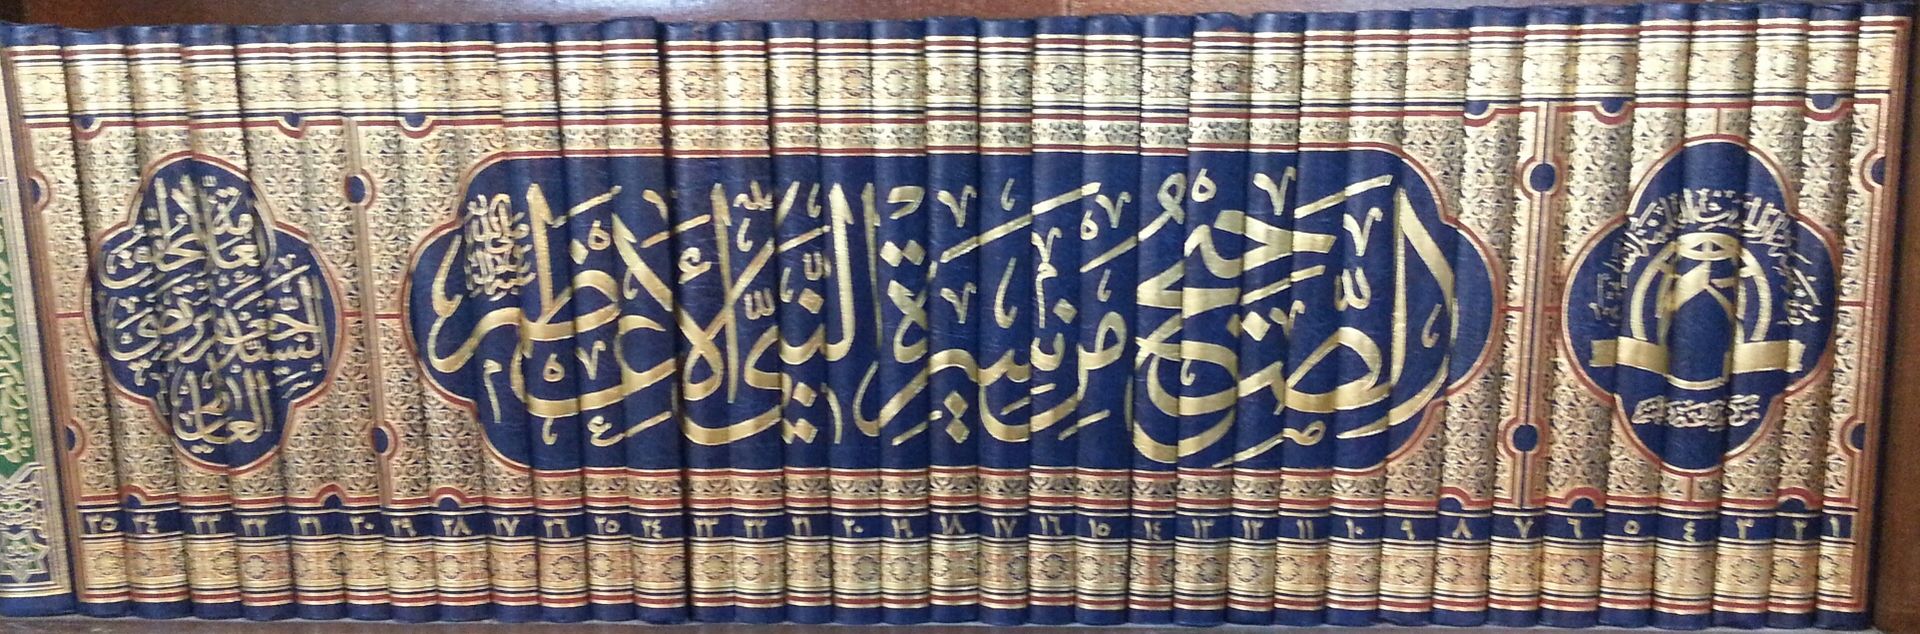 الصَّحِيحُ مِنْ سِيرَةِ النَّبِيِّ الأَعْظَمِ
العلامة المحقق
السيد جعفر مرتضى
العاملي
١ ٢ ٣ ٤ ٥ ٦ ٧ ٨ ٩ ١٠ ١١ ١٢ ١٣ ١٤ ١٥ ١٦ ١٧ ١٨ ١٩ ٢٠ ٢١ ٢٢ ٢٣ ٢٤ ٢٥ ٢٦ ٢٧ ٢٨ ٢٩ ٣٠ ٣١ ٣٢ ٣٣ ٣٤ ٣٥